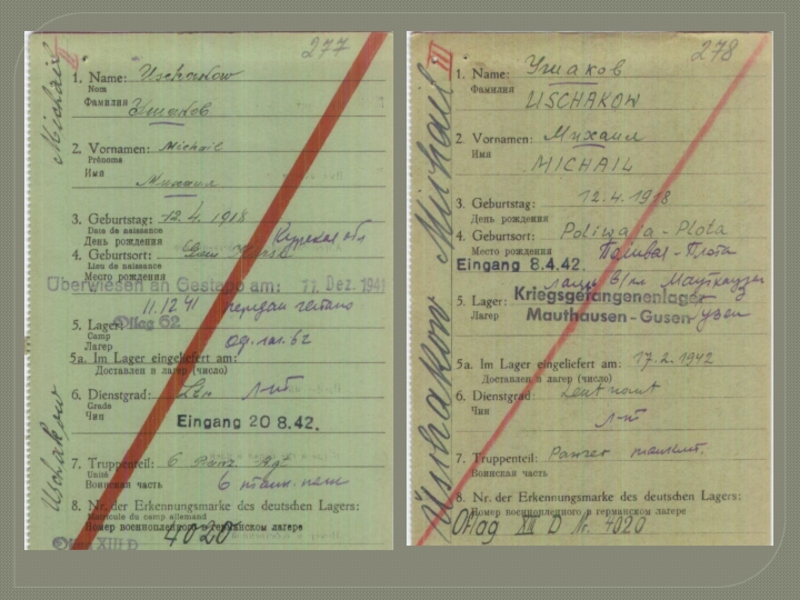 277
Michail
II
1. Name: Uschakow
Nom
Фамилия Ушаков
2. Vornamen: Michail
Prénoms
Имя
Михаил
3. Geburtstag: 12.4. 1918
Date de naissance
День рождения
Курская обл
4. Geburtsort: Kursk
Lieu de naissance
Место рождения
Überwiesen an Gestapo am: 11. Dez. 1941
11.12 41 передан гестапо
5. Lager: Oflag 62
Camp
Лагерь оф.лаг. 62
5a. Im Lager eingeliefert am:
Доставлен в лагерь (число)
6. Dienstgrad: Л-т
Grade
Чин
Eingang 20 8.42.
7. Truppenteil: 6 Panz
Unité
Воинская часть 6 танк.
8. Nr. der Erkennungsmarke des deutschen Lagers:
Matricule du camp allemand
Номер военнопленного в германском лагере
4020
Oflag XIII D
Uschakow
278
III
Uschakow Michail
1. Name: Ушаков
Фамилия
USCHAKOW
2. Vornamen: Михаил
Имя
MICHAIL
3. Geburtstag: 12.4. 1918
День рождения
4. Geburtsort: Poliwaja - Plota
Место рождения Паливая - Плота
Eingang 8.4.42.
лагерь в/пл Маутхаузен
5. Lager: Kriegsgefangenenlager
Лагерь Mauthausen - Gusen
5a. Im Lager eingeliefert am: 17.2.1942
Доставлен в лагерь (число)
6. Dienstgrad: Leutnant
Чин
Л-т
7. Truppenteil: Panzer танкист.
Воинская часть
8. Nr. der Erkennungsmarke des deutschen Lagers:
Номер военнопленного в германском лагере
Oflag XIII D Nr. 4020